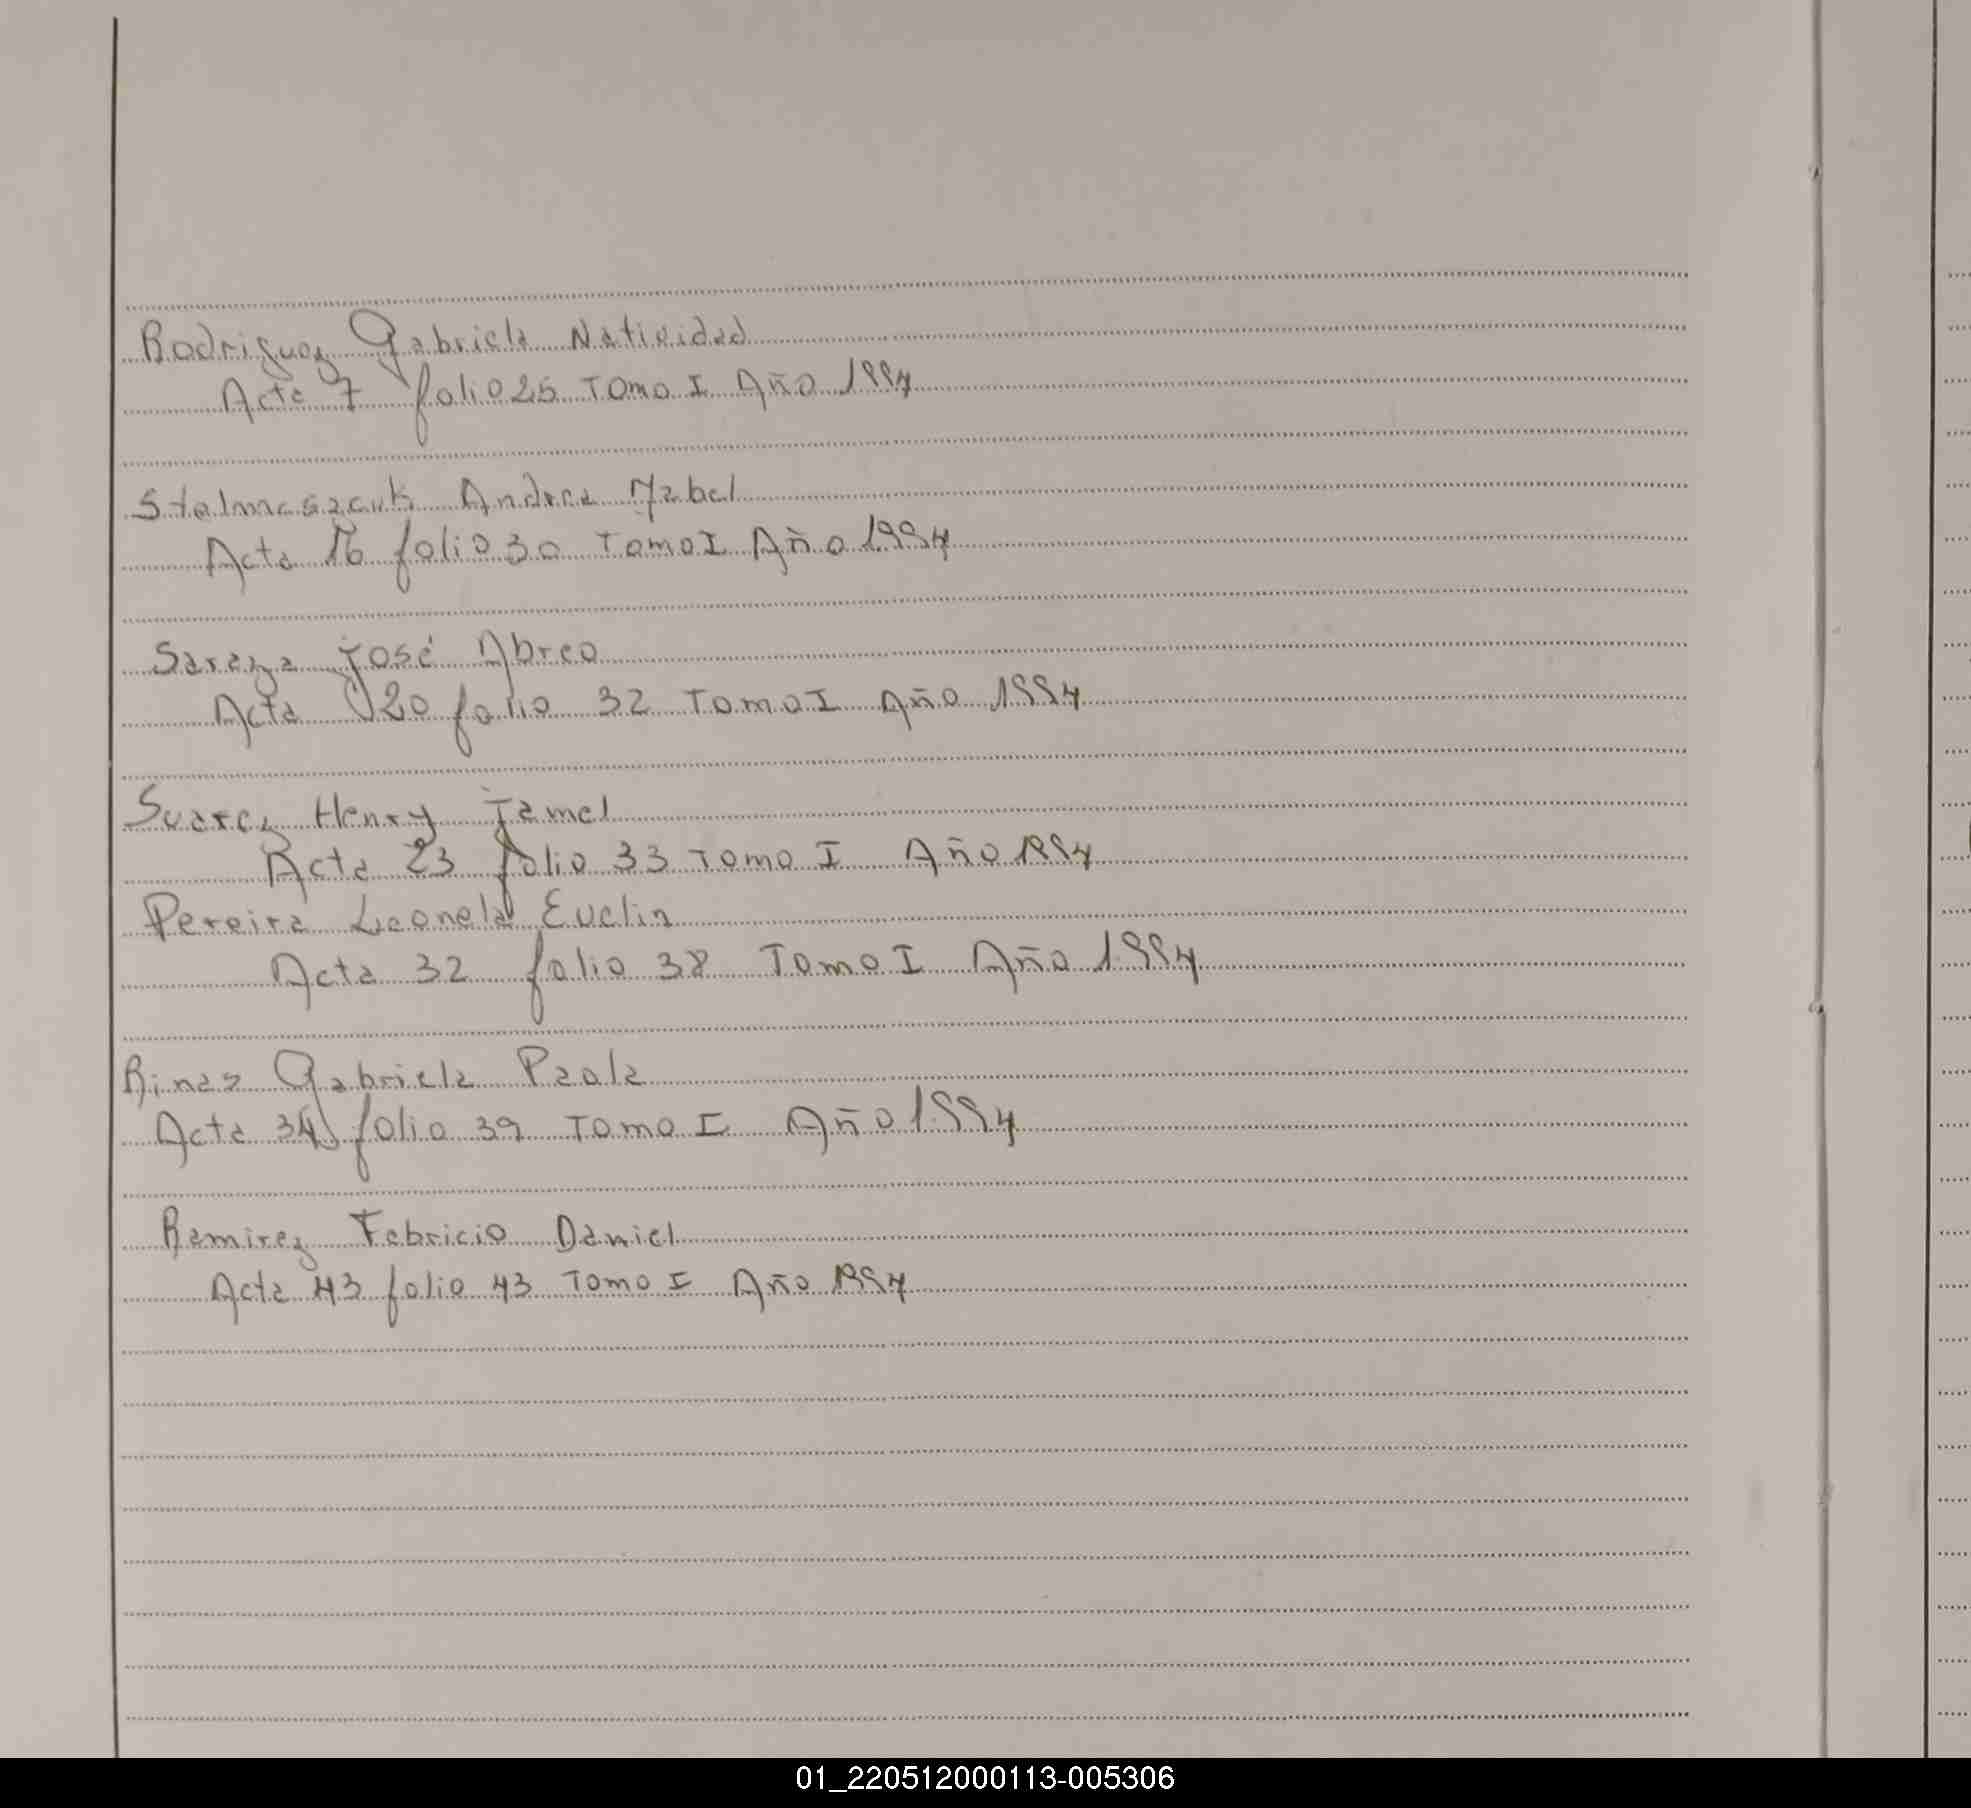 Rodriguez Gabriela Natividad
Acta 7 folio 25 Tomo I Año 1994
Stelmaszczuk Andrea Mabel
Acta 16 folio 30 Tomo I Año 1994
Saraza José Abreo
Acta 20 folio 32 Tomo I Año 1994
Suarez Henry Jamel
Acta 23 folio 33 Tomo I Año 1994
Pereira Leonela Evelin
Acta 32 folio 38 Tomo I Año 1994
Rinas Gabriela Paola
Acta 34 folio 39 Tomo I Año 1994
Ramirez Fabricio Daniel
Acta 43 folio 43 Tomo I Año 1994
01_220512000113-005306